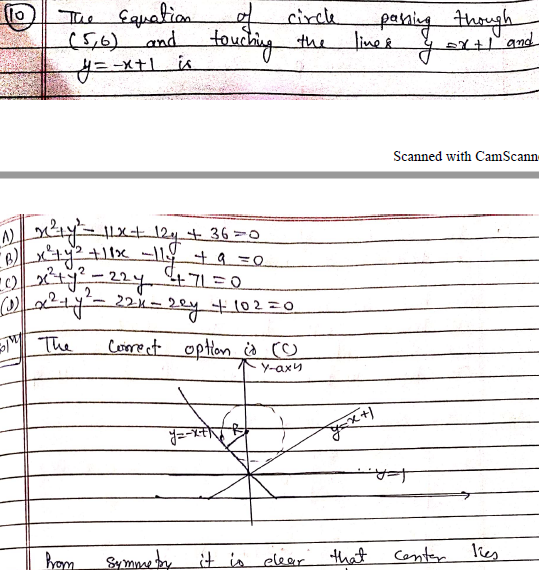 (10) The Equation of circle passing though
(5,6) and touching the lines y = x+1 and
y = -x+1 is
Scanned with CamScann
A) x²+y² - 11x + 12y + 36 = 0
B) x²+y² + 11x - 11y + 9 = 0
C) x²+y² - 22y + 71 = 0
(D) x²+y² - 22x - 20y + 102 = 0
The Correct option is (C)
y-axis
y=-x+1
R
y=x+1
y=1
from symmetry it is clear that center lies